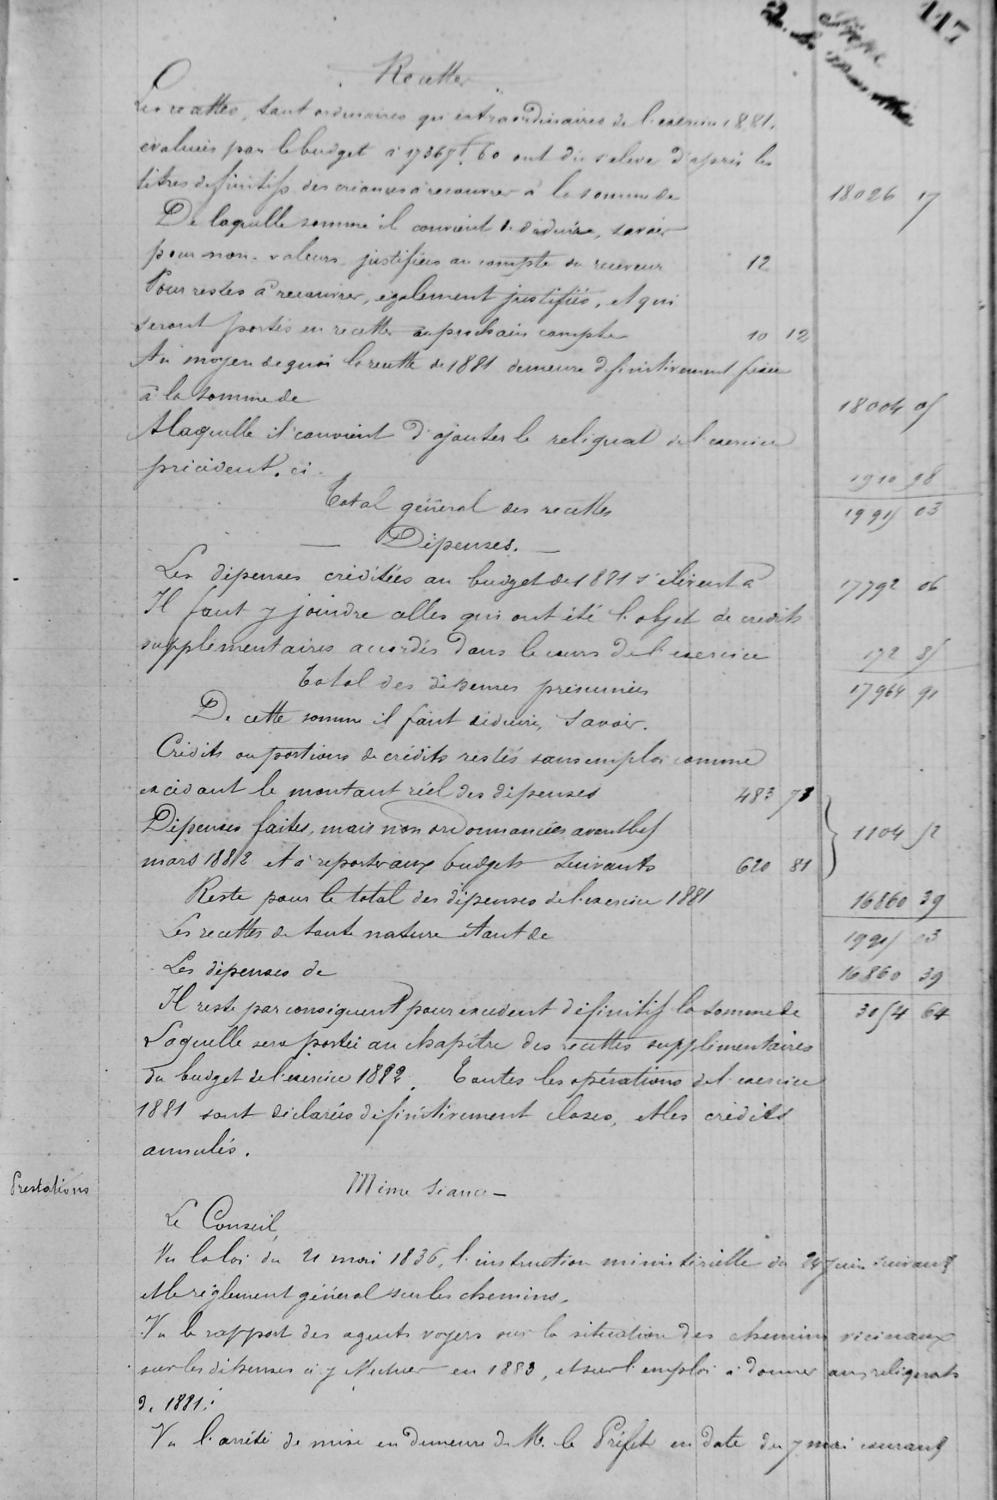 117
Recettes
Les recettes, tant ordinaires qu'extraordinaires de l'exercice 1881,
évaluées par le budget à 17367f.60 ont dû s'élever d'après les
titres définitifs des créances à recouvrer à la somme de 18026 17
De laquelle somme il convient de déduire, savoir
pour non-valeurs justifiées au compte du receveur 12
Pour restes à recouvrer, également justifiés, et qui
seront portés en recette au prochain compte 10 12
Au moyen de quoi la recette de 1881 demeure définitivement fixée
à la somme de 18004 05
A laquelle il convient d'ajouter le reliquat de l'exercice
précédent, ci 1910 98
Total général des recettes 19915 03
Dépenses.
Les dépenses créditées au budget de 1881 s'élèvent à 17792 06
Il faut y joindre celles qui ont été l'objet de crédits
supplémentaires accordés dans le cours de l'exercice 172 85
Total des dépenses présumées 17964 91
De cette somme il faut déduire, savoir.
Crédits ou portions de crédits restés sans emploi comme
excédant le montant réel des dépenses 483 71
Dépenses faites, mais non ordonnancées avant le 15
mars 1882 et à reporter aux budgets suivants 620 81 } 1104 52
Reste pour le total des dépenses de l'exercice 1881 16860 39
Les recettes de toute nature étant de 19915 03
Les dépenses de 16860 39
Il reste par conséquent pour excédent définitif la somme de 3054 64
Laquelle sera portée au chapitre des recettes supplémentaires
du budget de l'exercice 1882. Toutes les opérations de l'exercice
1881 sont déclarées définitivement closes, et les crédits
annulés.
Prestations
Même séance
Le Conseil,
Vu la loi du 21 mai 1836, l'instruction ministérielle du 24 juin suivant
et le règlement général sur les chemins.
Vu le rapport des agents voyers sur la situation des chemins vicinaux
sur les dépenses à y effectuer en 1883, et sur l'emploi à donner aux reliquats
de 1881.
Vu l'arrêté de mise en demeure de M. le Préfet en date du 7 mai courant